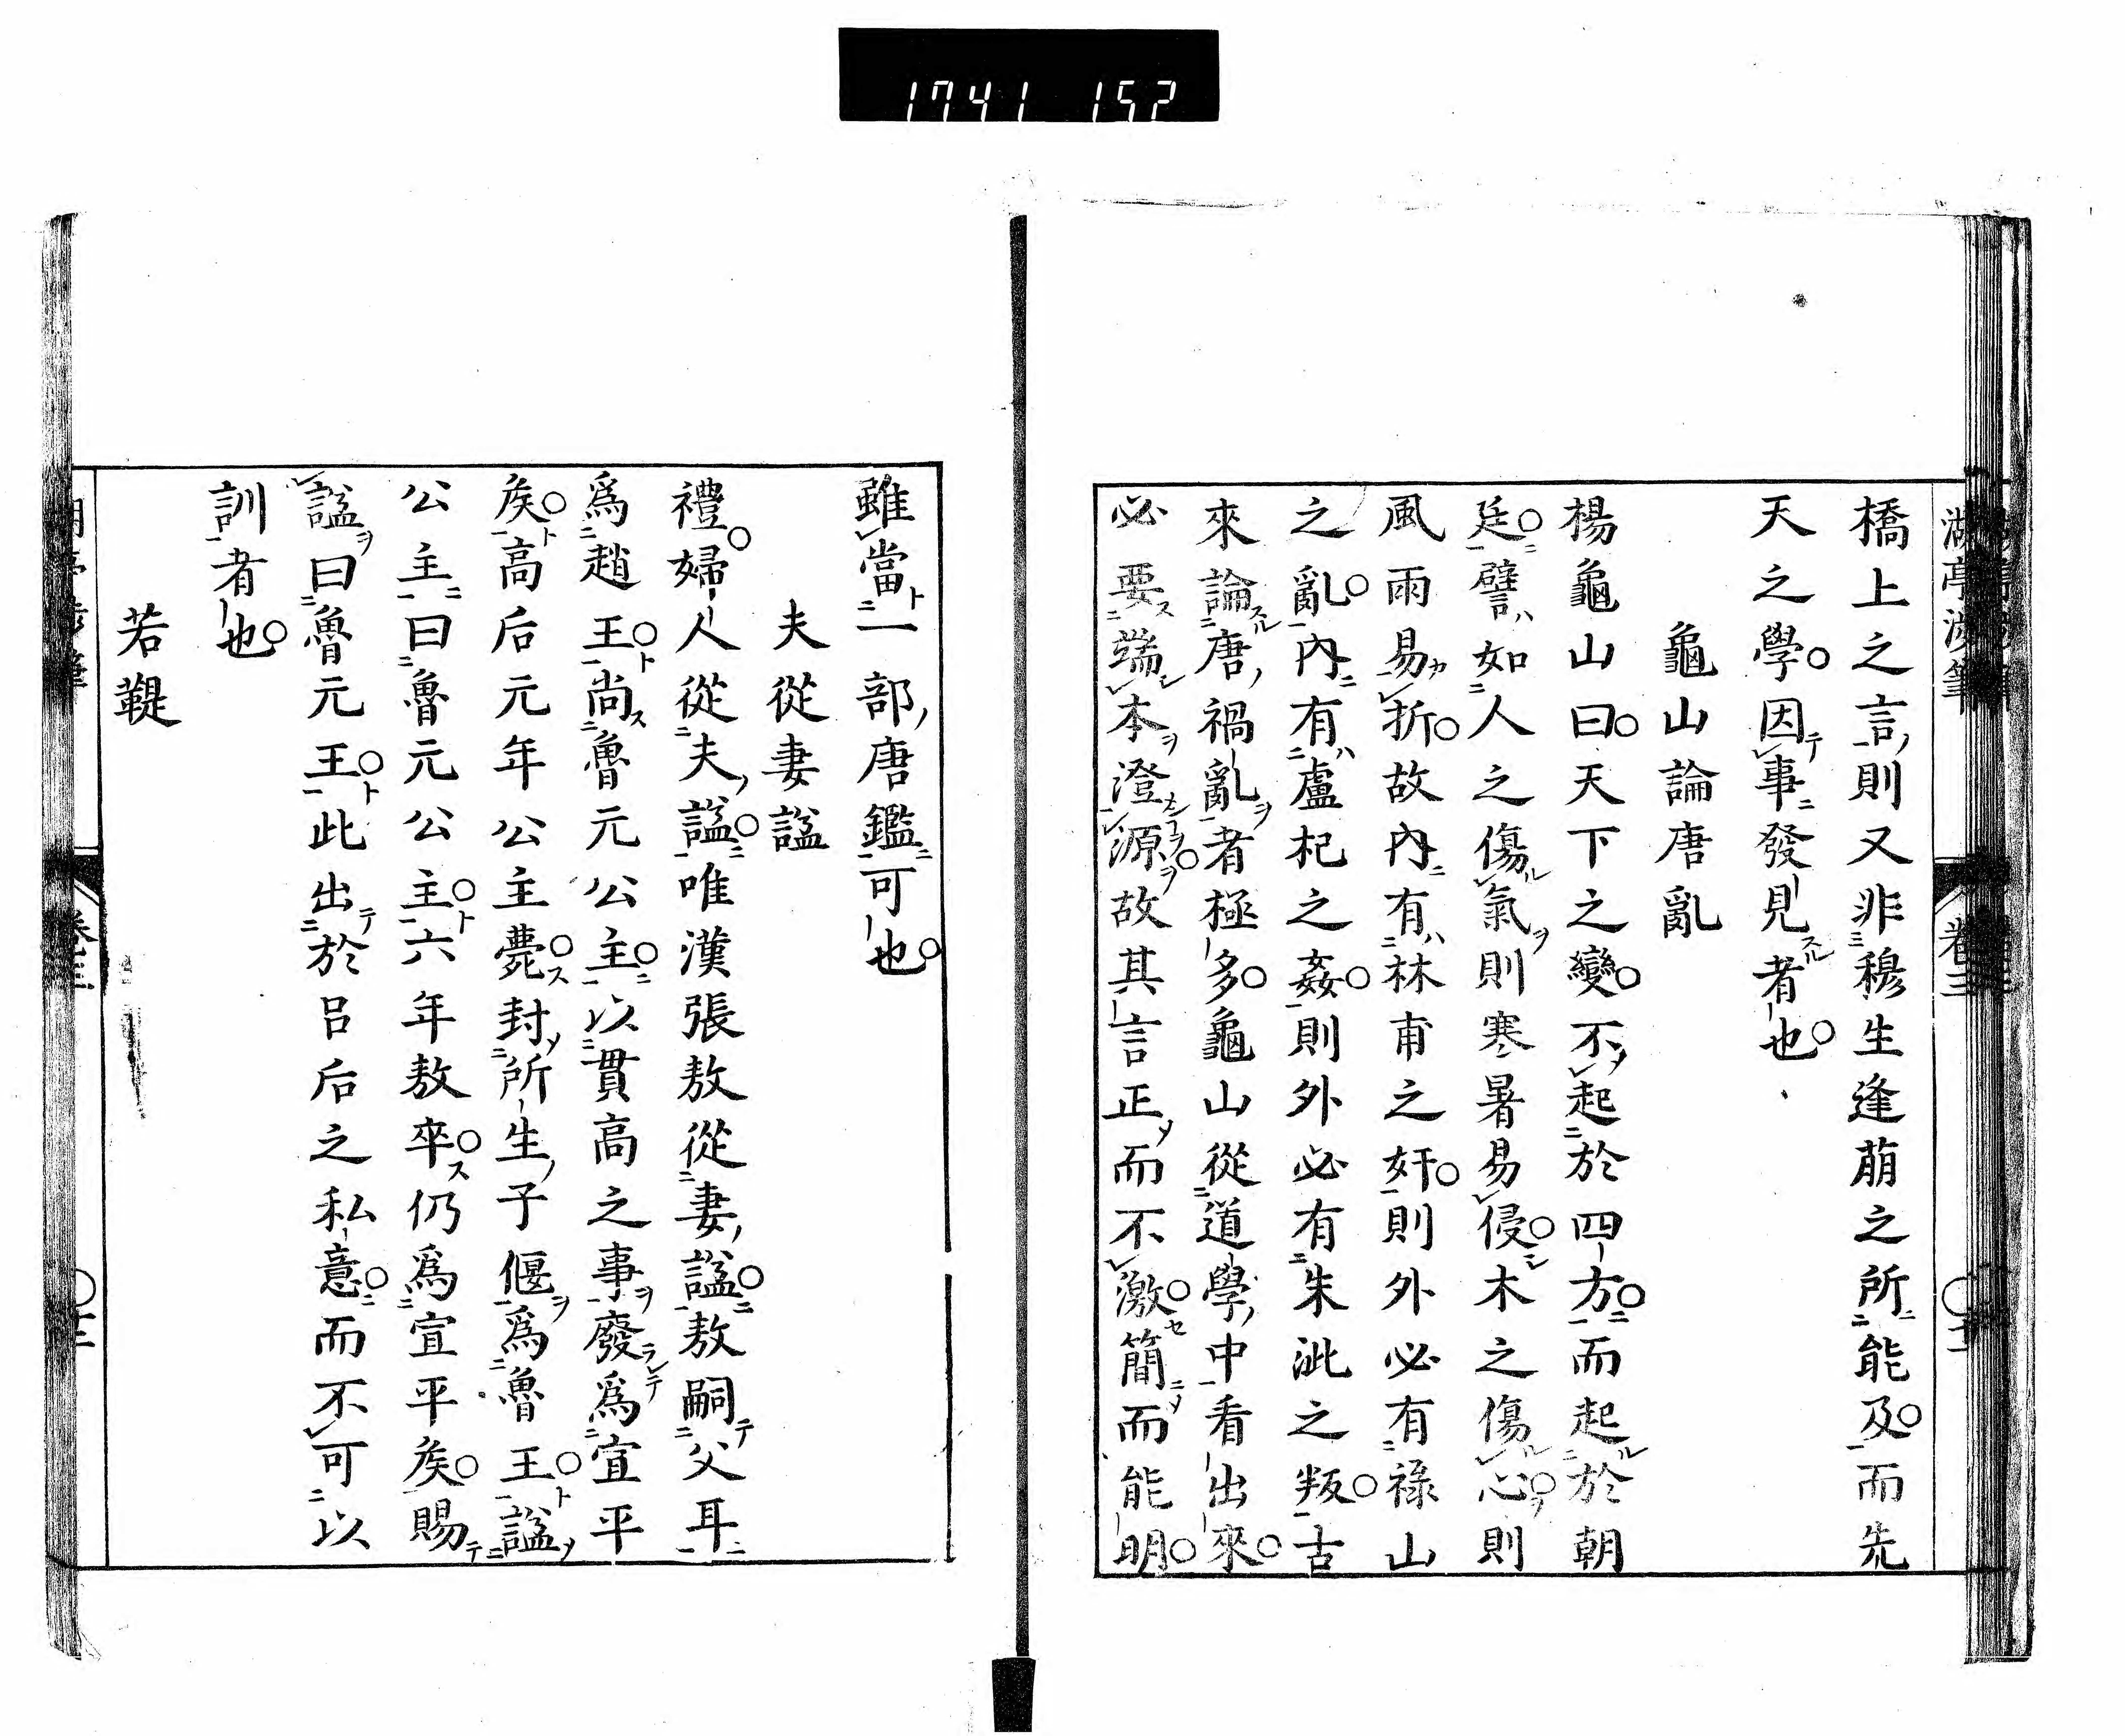 1741 152
橋上之言則又非穆生逢萠之所能及而先
天之學因事發見者也
龜山論唐亂
楊龜山曰天下之變不起於四方而起於朝
廷譬如人之傷氣則寒暑易侵木之傷心則
風雨易折故內有林甫之奸則外必有祿山
之亂內有盧杞之姦則外必有朱泚之叛古
來論唐禍亂者極多龜山從道學中看出來
必要端本澄源故其言正而不激簡而能明
雖當一部唐鑑可也
夫從妻諡
禮婦人從夫諡唯漢張敖從妻諡敖嗣父耳
爲趙王尚魯元公主以貫高之事廢爲宣平
矦高后元年公主薨封所生子偃爲魯王諡
公主曰魯元公主六年敖卒仍爲宣平矦賜
諡曰魯元王此出於呂后之私意而不可以
訓者也
若鞮